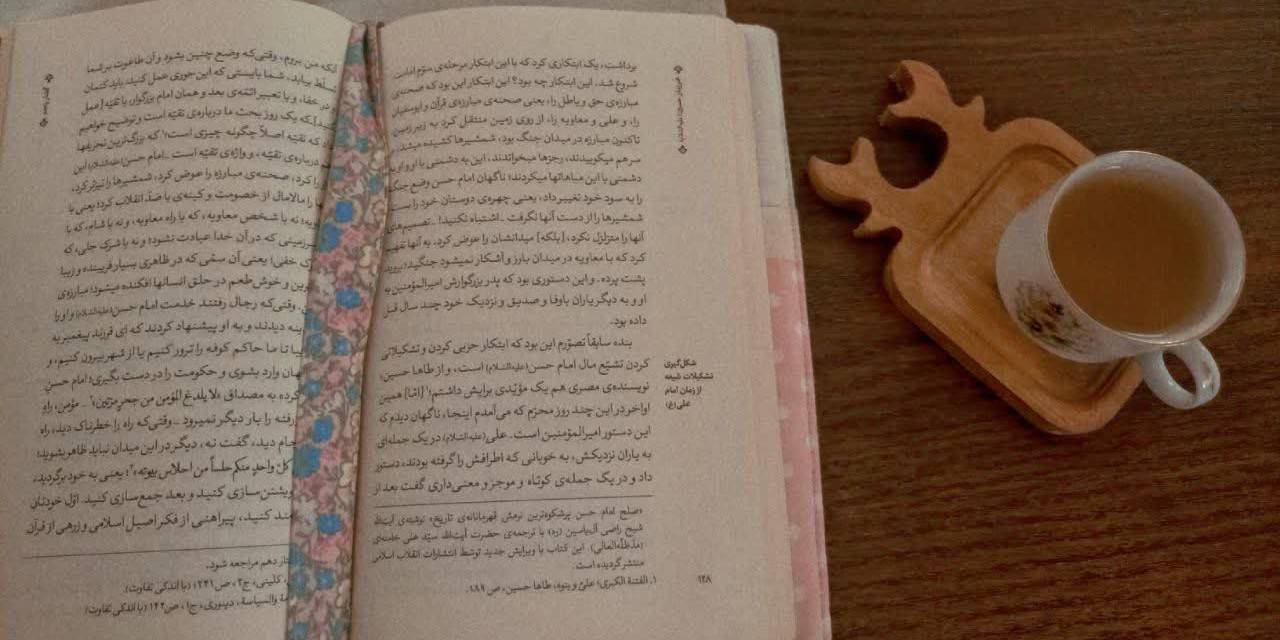 برداشت، یک ابتکاری کرد که با این ابتکار مرحله‌ی سوّم امامت
شروع شد. این ابتکار چه بود؟ این ابتکار این بود که صحنه‌ی
مبارزه‌ی حق و باطل را، یعنی صحنه‌ی مبارزه‌ی قرآن و ابوسفیان
را، و علی و معاویه را، از روی زمین منتقل کرد به زیر زمین
تاکنون مبارزه در میدان جنگ بود، شمشیرها کشیده میشد،
سرهم میکوبیدند، رجزها میخواندند، این به دشمنی با او و او به
دشمنی با این مباهاتها میکردند؛ ناگهان امام حسن وضع جنگ
را به سود خود تغییر داد، یعنی چهره‌ی دوستان خود را بست
شمشیرها را از دست آنها نگرفت ـ اشتباه نکنید! ـ تصمیم‌های
آنها را متزلزل نکرد، [بلکه] میدانشان را عوض کرد. به آنها تفهیم
کرد که با معاویه در میدان بارز و آشکار نمیشود جنگید؛ بروید
پشت پرده. و این دستوری بود که پدر بزرگوارش امیرالمؤمنین به
او و به دیگر یاران باوفا و صدیق و نزدیک خود چند سال قبل
داده بود.
بنده سابقاً تصوّرم این بود که ابتکار حزبی کردن و تشکیلاتی
شکل‌گیری
تشکیلات شیعه
از زمان امام
علی(ع)
کردن تشیّع مال امام حسن(علیه‌السّلام) است، و از طاها حسین،
نویسنده‌ی مصری هم یک مؤیّدی برایش داشتم؛۱ [امّا] همین
اواخر در این چند روز محرّم که می‌آمدم اینجا، ناگهان دیدم که
این دستور امیرالمؤمنین است. علی(علیه‌السّلام) در یک جمله‌ای
به یاران نزدیکش، به خوبانی که اطرافش را گرفته بودند، دستور
داد و در یک جمله‌ی کوتاه و موجز و معنی‌داری گفت بعد از
«صلح امام حسن پرشکوه‌ترین نرمش قهرمانانه‌ی تاریخ» نوشته‌ی آیت‌الله
شیخ راضی آل‌یاسین (ره) با ترجمه‌ی حضرت آیت‌الله سیّد علی خامنه‌ای
(مدّظلّه‌العالی). این کتاب با ویرایش جدید توسّط انتشارات انقلاب اسلامی
منتشر گردیده است.
۱. الفتنة الکبری؛ علیّ و بنوه، طاها حسین، ص ۱۸۹.
۱۲۸
آنکه من بروم، وقتی‌که وضع چنین بشود و آن طاغوت بر شما
تسلّط بیابد، شما بایستی که این‌جوری عمل کنید، باید کتمان
در خفا، و با تعبیر ائمّه‌ی بعد و همان امام بزرگوار، با تقیّه [عمل
که یک روز بحث ما درباره‌ی تقیّه است و توضیح خواهیم
که تقیّه اصلاً چگونه چیزی است؛۱ که بزرگ‌ترین تحریفها
درباره‌ی تقیّه، و واژه‌ی تقیّه است ـ امام حسن(علیه‌السّلام) این
را کرد، صحنه‌ی مبارزه را عوض کرد، شمشیرها را تیزتر کرد،
را مالامال از خصومت و کینه‌ی با ضدّ انقلاب کرد؛ یعنی با
نه با شخص معاویه، که با راه معاویه، و نه با شام، که با
سرزمینی که در آن خدا عبادت نشود؛ و نه با شرک جلی، که
خفی؛ یعنی آن سمّی که در ظاهری بسیار فریبنده و زیبا
و خوش‌طعم در حلق انسانها افکنده میشود؛ مبارزه‌ی
وقتی‌که رجال رفتند خدمت امام حسن(علیه‌السّلام) و او را
دیدند و به او پیشنهاد کردند که ای فرزند پیغمبر به
بیا تا ما حاکم کوفه را ترور کنیم یا از شهر بیرون کنیم، و
وارد بشوی و حکومت را در دست بگیری؛ امام حسن
کرده به مصداق «لا یلدغ المؤمن من جحر مرّتین»۲ ـ مؤمن، راهِ
رفته را بار دیگر نمیرود ـ وقتی‌که راه را خطرناک دید، راه
دید، گفت نه، دیگر در این میدان نباید ظاهر بشوید؛
کلّ واحدٍ منکم حلساً من احلاس بیوته»؛۳ یعنی به خود برگردید،
خویشتن‌سازی کنید و بعد جمع‌سازی کنید. اوّل خودتان
کنید، پیراهنی از فکر اصیل اسلامی و زرهی از قرآن
دهم مراجعه شود.
کلینی، ج ۲، ص ۲۴۱ (با اندکی تفاوت)
والسیاسة، دینوری، ج ۱، ص ۱۴۲ (با اندکی تفاوت)